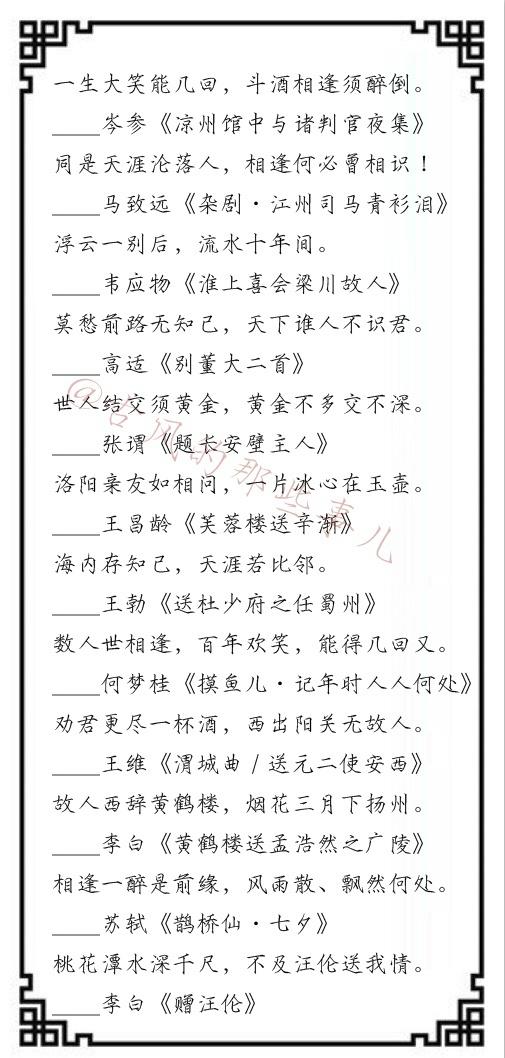 一生大笑能几回，斗酒相逢须醉倒。
____岑参《凉州馆中与诸判官夜集》
同是天涯沦落人，相逢何必曾相识！
____马致远《杂剧·江州司马青衫泪》
浮云一别后，流水十年间。
____韦应物《淮上喜会梁川故人》
莫愁前路无知己，天下谁人不识君。
____高适《别董大二首》
世人结交须黄金，黄金不多交不深。
____张谓《题长安壁主人》
洛阳亲友如相问，一片冰心在玉壶。
____王昌龄《芙蓉楼送辛渐》
海内存知己，天涯若比邻。
____王勃《送杜少府之任蜀州》
数人世相逢，百年欢笑，能得几回又。
____何梦桂《摸鱼儿·记年时人人何处》
劝君更尽一杯酒，西出阳关无故人。
____王维《渭城曲／送元二使安西》
故人西辞黄鹤楼，烟花三月下扬州。
____李白《黄鹤楼送孟浩然之广陵》
相逢一醉是前缘，风雨散、飘然何处。
____苏轼《鹊桥仙·七夕》
桃花潭水深千尺，不及汪伦送我情。
____李白《赠汪伦》
@古风的那些事儿